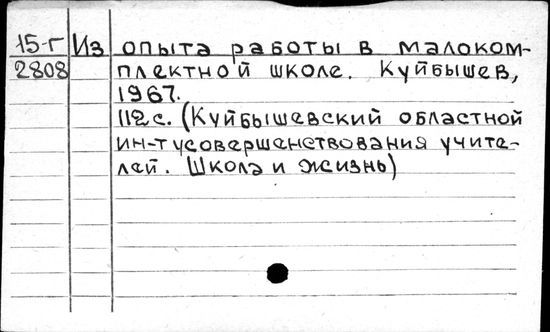 15-г Из опыта работы в малоком-
2808 плектной школе. Куйбышев,
1967.
112с. (Куйбышевский областной
ин-т усовершенствования учите-
лей. Школа и жизнь)